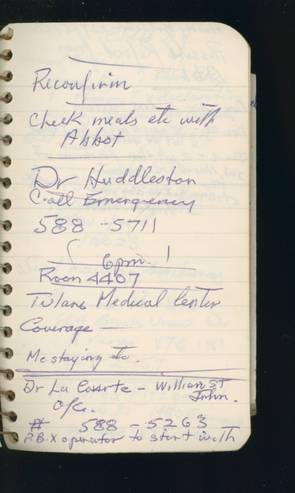 Reconfirm
Check meals etc with
Abbot
Dr Huddleston
Call Emergency
588 - 5711
( 6pm. )
Room 4407
Tulane Medical Center
Coverage —
Me staying etc.
Dr La Courte - William ST
John.
Ofc.
# 588 - 5263
P.B.X operator to start with